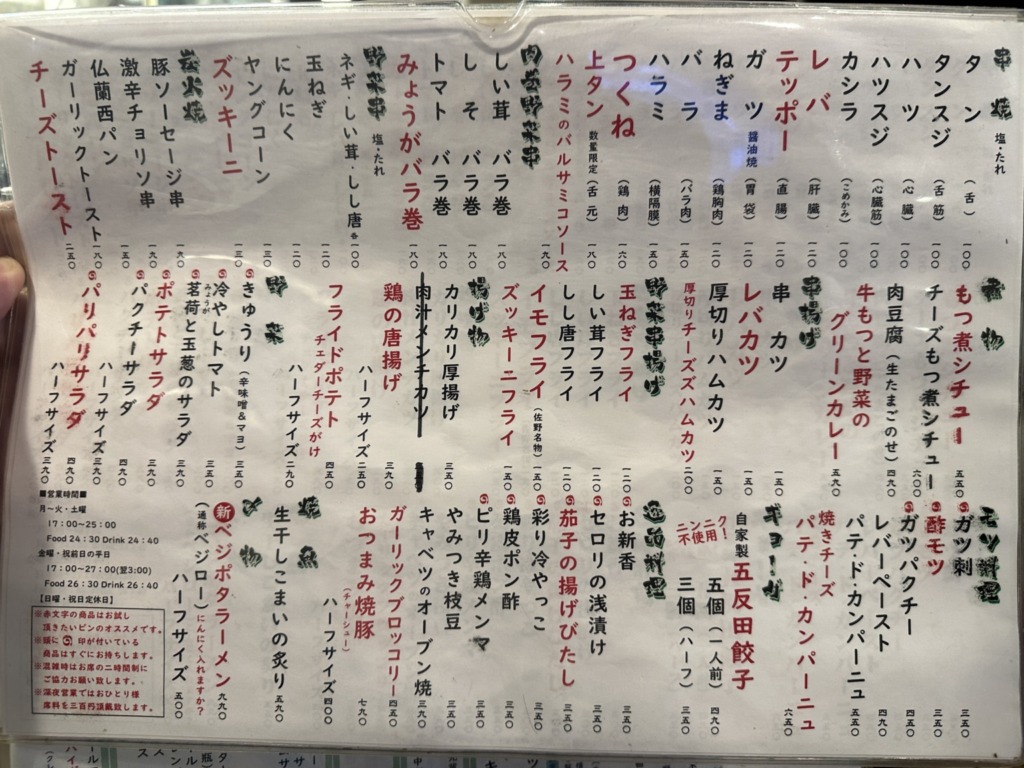 串焼 塩・たれ
タン (舌) 一〇〇
タンスジ (舌筋) 一〇〇
ハツ (心臓) 一〇〇
ハツスジ (心臓筋) 一〇〇
カシラ (こめかみ) 一〇〇
レバ (肝臓) 一二〇
テッポー (直腸) 一二〇
ガツ 醤油焼 (胃袋) 一二〇
ねぎま (鶏胸肉) 一二〇
バラ (バラ肉) 一五〇
ハラミ (横隔膜) 一五〇
つくね (鶏肉) 一六〇
上タン 数量限定 (舌元) 一八〇
ハラミのバルサミコソース 一九〇
肉巻野菜串
しい茸バラ巻 一八〇
しそバラ巻 一八〇
トマトバラ巻 一八〇
みょうがバラ巻 一八〇
野菜串 塩・たれ
ネギ・しい茸・しし唐 各一〇〇
玉ねぎ 一二〇
にんにく 一二〇
ヤングコーン 一三〇
ズッキーニ 一五〇
炭火焼
豚ソーセージ串 一六〇
激辛チョリソ串 一九〇
仏蘭西パン 一五〇
ガーリックトースト 一八〇
チーズトースト 二五〇
煮物
もつ煮シチュー 五五〇
チーズもつ煮シチュー 六〇〇
肉豆腐 (生たまごのせ) 四九〇
牛もつと野菜の
グリーンカレー 五九〇
串揚げ
串カツ 一五〇
レバカツ 一五〇
厚切りハムカツ 一五〇
厚切りチーズズハムカツ 二〇〇
野菜串揚げ
玉ねぎフライ 一二〇
しい茸フライ 一二〇
しし唐フライ 一二〇
イモフライ (佐野名物) 一五〇
ズッキーニフライ 一五〇
揚げ物
カリカリ厚揚げ 三五〇
肉汁メンチカツ
鶏の唐揚げ 三九〇
ハーフサイズ 二五〇
フライドポテト 四五〇
チェダーチーズがけ
ハーフサイズ 二九〇
野菜
きゅうり (辛味噌&マヨ) 三五〇
冷やしトマト 三五〇
茗荷と玉葱のサラダ 三九〇
みょうが
パクチーサラダ 四九〇
ポテトサラダ 三九〇
ハーフサイズ 三九〇
パリパリサラダ 四九〇
ハーフサイズ 三九〇
モツ料理
ガツ刺 三五〇
酢モツ 三五〇
ガツパクチー 四五〇
レバーペースト 四五〇
パテ・ド・カンパーニュ 五五〇
焼きチーズ
パテ・ド・カンパーニュ 六五〇
ギョーザ
自家製 五反田餃子
五個 (一人前) 四九〇
三個 (ハーフ) 三五〇
ニンニク
不使用!
逸品料理
お新香 三五〇
セロリの浅漬け 三五〇
茄子の揚げびたし 三五〇
彩り冷やっこ 三五〇
鶏皮ポン酢 三五〇
ピリ辛鶏メンマ 三五〇
やみつき枝豆 三五〇
キャベツのオーブン焼 三九〇
ガーリックブロッコリー 四五〇
おつまみ焼豚 七九〇
(チャーシュー)
ハーフサイズ 四〇〇
焼魚
生干しこまいの炙り 五九〇
〆物
新 ベジポタラーメン 九九〇
(通称ベジロー) にんにく入れますか?
ハーフサイズ 五〇〇
■営業時間■
月〜火・土曜
17:00~25:00
Food 24:30 Drink 24:40
金曜・祝前日の平日
17:00~27:00(翌3:00)
Food 26:30 Drink 26:40
【日曜・祝日定休日】
※赤文字の商品はお試し
頂きたいピンのオススメです。
※頭に 印が付いている
商品はすぐにお持ちします。
※混雑時はお席の二時間制に
ご協力お願い致します。
※深夜営業ではおひとり様
席料を三百円頂戴致します。